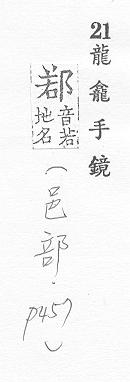 21龍龕手鏡
鄀
音若
地名
(邑部.p457)